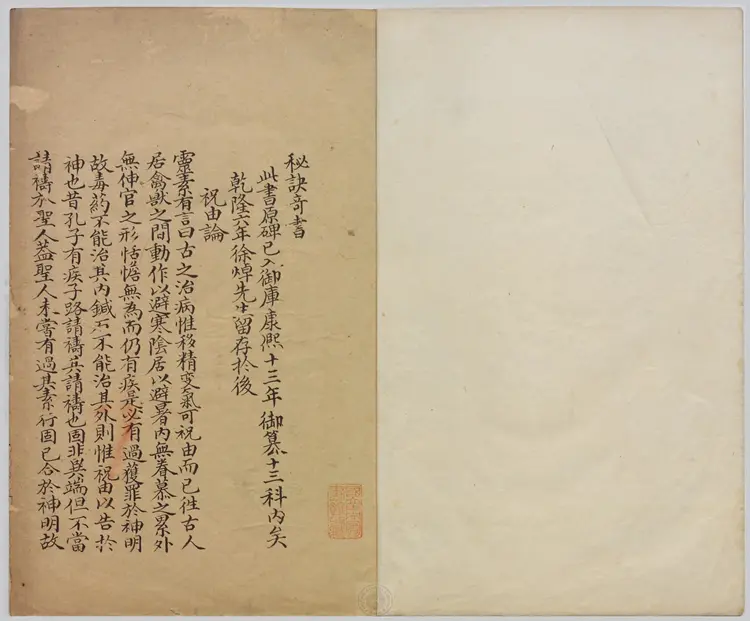 秘訣奇書
此書原碑已入御庫康熙十三年 御纂十三科內矣
乾隆六年徐焯先生留存於後
祝由論
靈素有言曰古之治病惟移精变氣可祝由而已徃古人
居禽獸之間動作以避寒陰居以避暑內無眷慕之累外
無伸官之形恬憺無為而仍有疾是必有過獲罪於神明
故毒药不能治其內鍼石不能治其外則惟祝由以告於
神也昔孔子有疾子路請禱兵請禱也固非異端但不當
請禱於聖人葢聖人未嘗有過其素行固已合於神明故